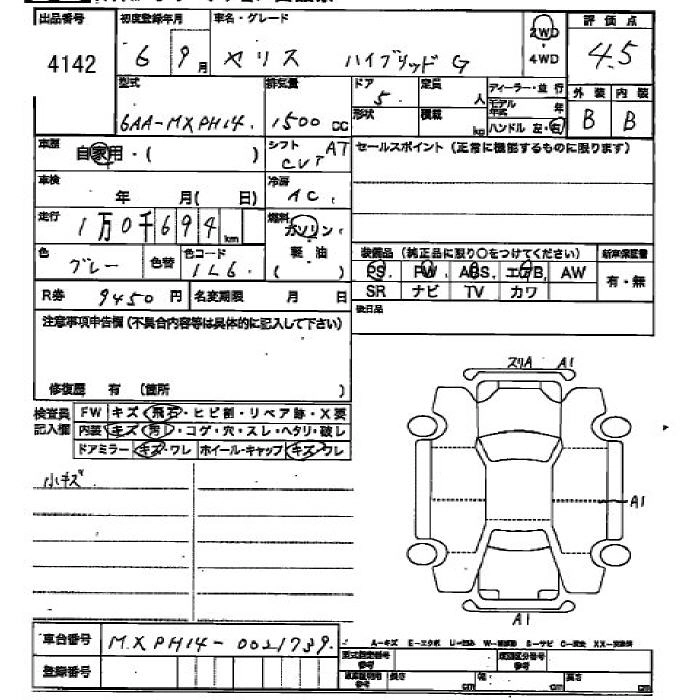 出品番号 初度登録年月 車名・グレード 2WD 評価点
4142 6 9月 ヤリス ハイブリッド G ・4WD 4.5
型式 排気量 ドア 定員 ディーラー・並行 外装 内装
6AA-MXPH14. 1500 CC 5. 人 モデル年式 年 B B
形状 積載 kg ハンドル 左・右
車歴 自家用・( ) シフト AT CVT セールスポイント (正常に機能するものに限ります)
車検 年 月( 日) 冷房 AC.
走行 1万0千694 km 燃料 ガソリン・軽油 ( )
色 グレー 色替 色コード 1L6. 装備品 (純正品に限り○をつけてください) 新車保証書
PS. PW. ABS. エアB. AW 有・無
SR ナビ TV カワ
R券 9450円 名変期限 月 日 後日品
注意事項申告欄 (不具合内容等は具体的に記入して下さい)
修復歴 有 (箇所 )
検査員記入欄 FW キズ・飛石・ヒビ割・リペア跡・X要
内装 キズ・汚・コゲ・穴・スレ・ヘタリ・破レ
ドアミラー キズ・ワレ ホイール・キャップ キズ・ワレ
小キズ
スリA A1
A1
A1
車台番号 MXPH14-0021739.
A-キズ E-エクボ
登録番号
型式指定番号 参考 類別区分番号 参考
長さ cm 幅 cm 高さ cm